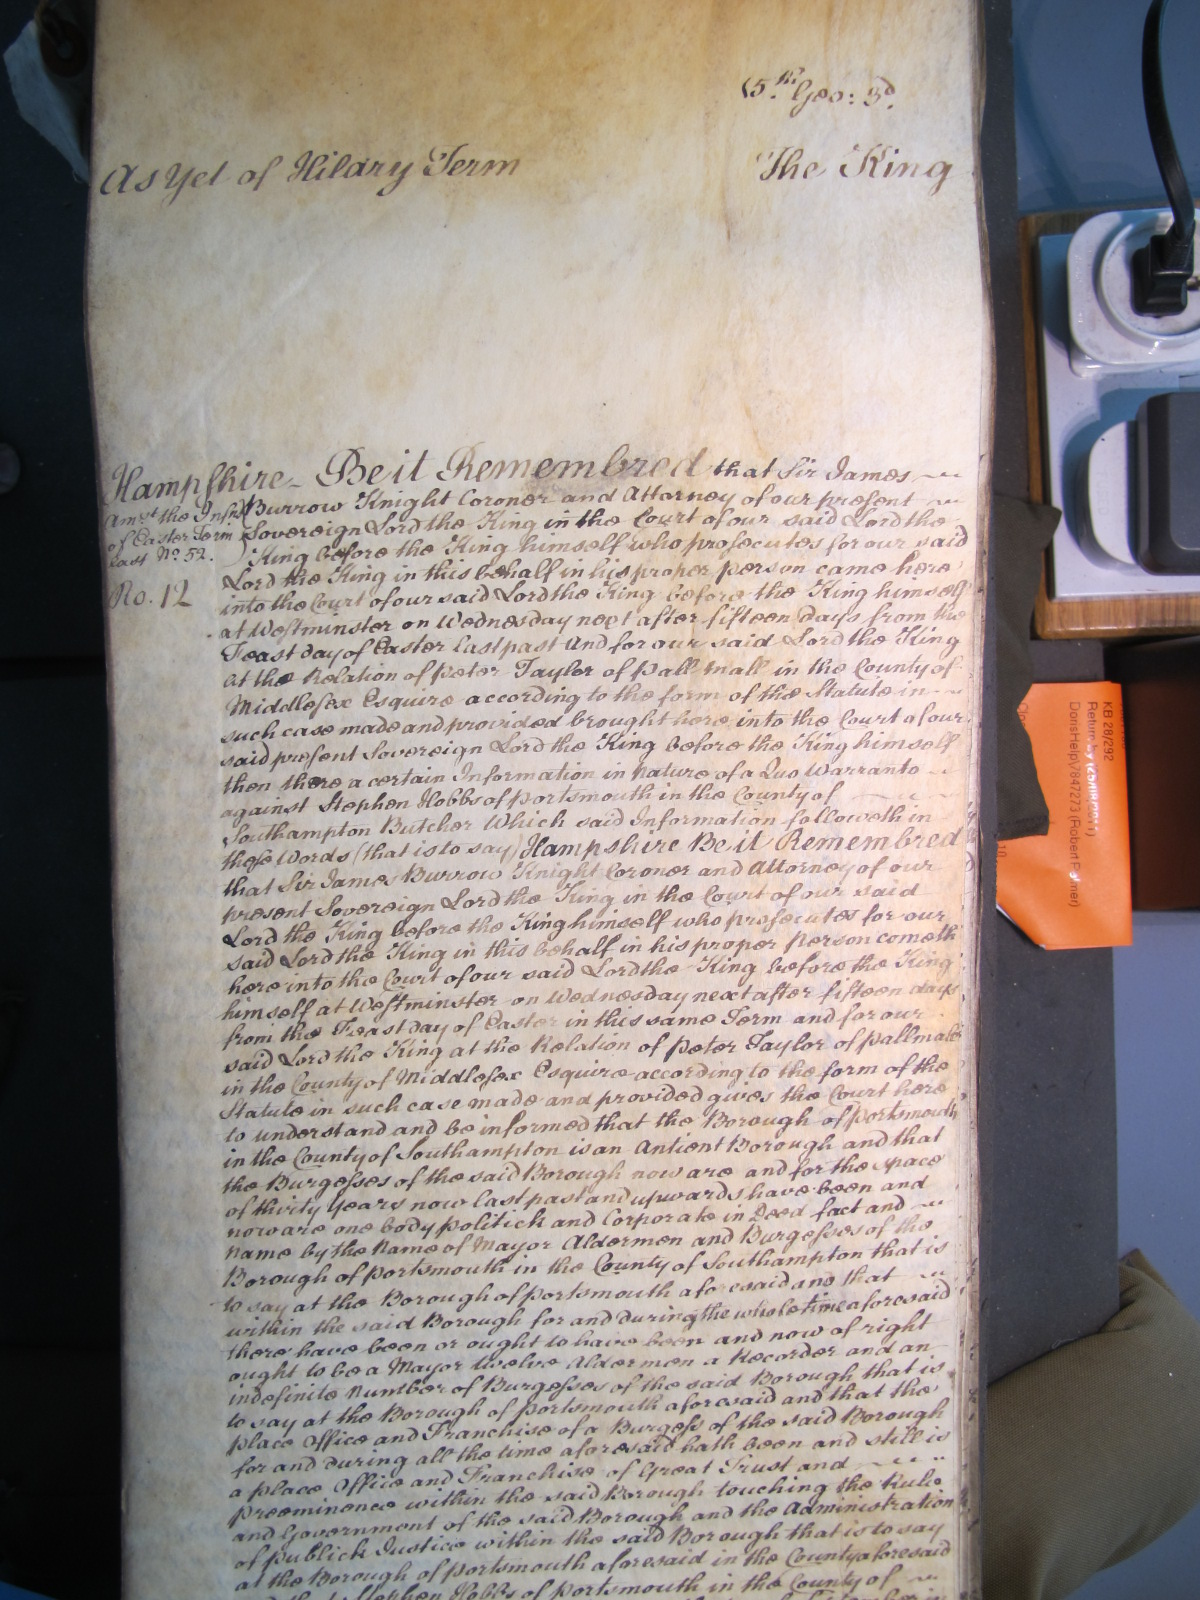 15.th Geo: 3d.
As Yet of Hilary Term The King
Hampshire - Be it Remembred that Sir James
Burrow Knight Coroner and Attorney of our present
Amgst the Infs
of Easter Term
last No. 52.
No. 12
Sovereign Lord the King in the Court of our said Lord the
King before the King himself who prosecutes for our said
Lord the King in this behalf in his proper person came here
into the Court of our said Lord the King before the King himself
at Westminster on Wednesday next after fifteen days from the
Feast day of Easter last past And for our said Lord the King
at the Relation of Peter Taylor of pall mall in the County of
Middlesex Esquire according to the form of the Statute in
such case made and provided brought here into the Court of our
said present Sovereign Lord the King before the King himself
then there a certain Information in Nature of a Quo Warranto
against Stephen Hobbs of portsmouth in the County of
Southampton Butcher Which said Information followeth in
these Words (that is to say) Hampshire Be it Remembred
that Sir James Burrow Knight Coroner and Attorney of our
present Sovereign Lord the King in the Court of our said
Lord the King before the King himself who prosecutes for our
said Lord the King in this behalf in his proper Person cometh
here into the Court of our said Lord the King before the King
himself at Westminster on Wednesday next after fifteen days
from the Feast day of Easter in this same Term and for our
said Lord the King at the Relation of Peter Taylor of pallmall
in the County of Middlesex Esquire according to the form of the
Statute in such case made and provided gives the Court here
to understand and be informed that the Borough of portsmouth
in the County of Southampton is an Antient Borough and that
the Burgesses of the said Borough now are and for the space
of thirty Years now last past and upwards have been and
now are one body politick and Corporate in Deed fact and
Name by the Name of Mayor Aldermen and Burgesses of the
Borough of portsmouth in the County of Southampton that is
to say at the Borough of portsmouth aforesaid and that
within the said Borough for and during the whole time aforesaid
there have been or ought to have been and now of right
ought to be a Mayor twelve Aldermen a Recorder and an
indefinite Number of Burgesses of the said Borough that is
to say at the Borough of portsmouth aforesaid and that the
place Office and Franchise of a Burgess of the said Borough
for and during all the time aforesaid hath been and still is
a place Office and Franchise of Great Trust and
preeminence within the said Borough touching the Rule
and Government of the said Borough and the Administration
of publick Justice within the said Borough that is to say
at the Borough of portsmouth aforesaid in the County aforesaid
Stephen Hobbs of portsmouth in the County of
KB 28/292
Return by
DorisHelp\/847273 (Robert Palmer)